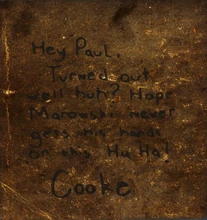 Hey Paul,
Turned out
well huh? Hope
Marowski never
gets his hands
on this Hu Ha!
Cooke